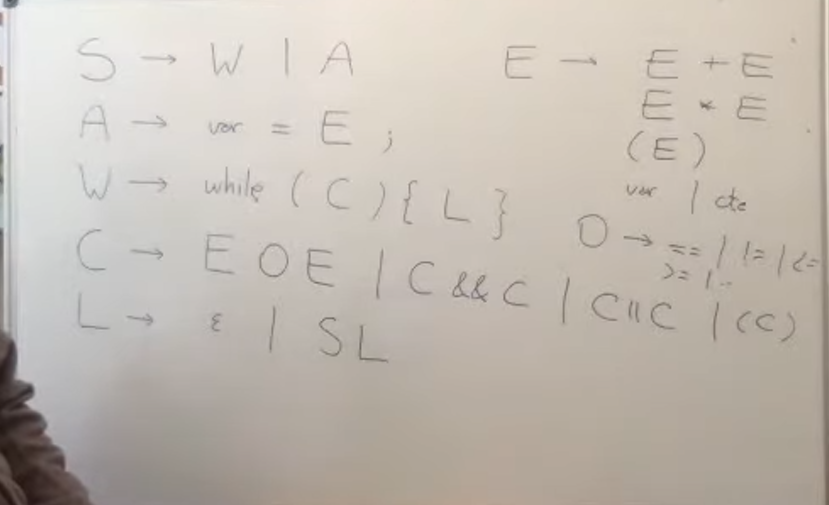 S → W | A
A → var = E ;
W → while ( C ) { L }
C → E O E | C && C | C || C | (C)
L → ε | S L
E → E + E
E * E
(E)
var | cte
O → == | != | <=
>= | ..